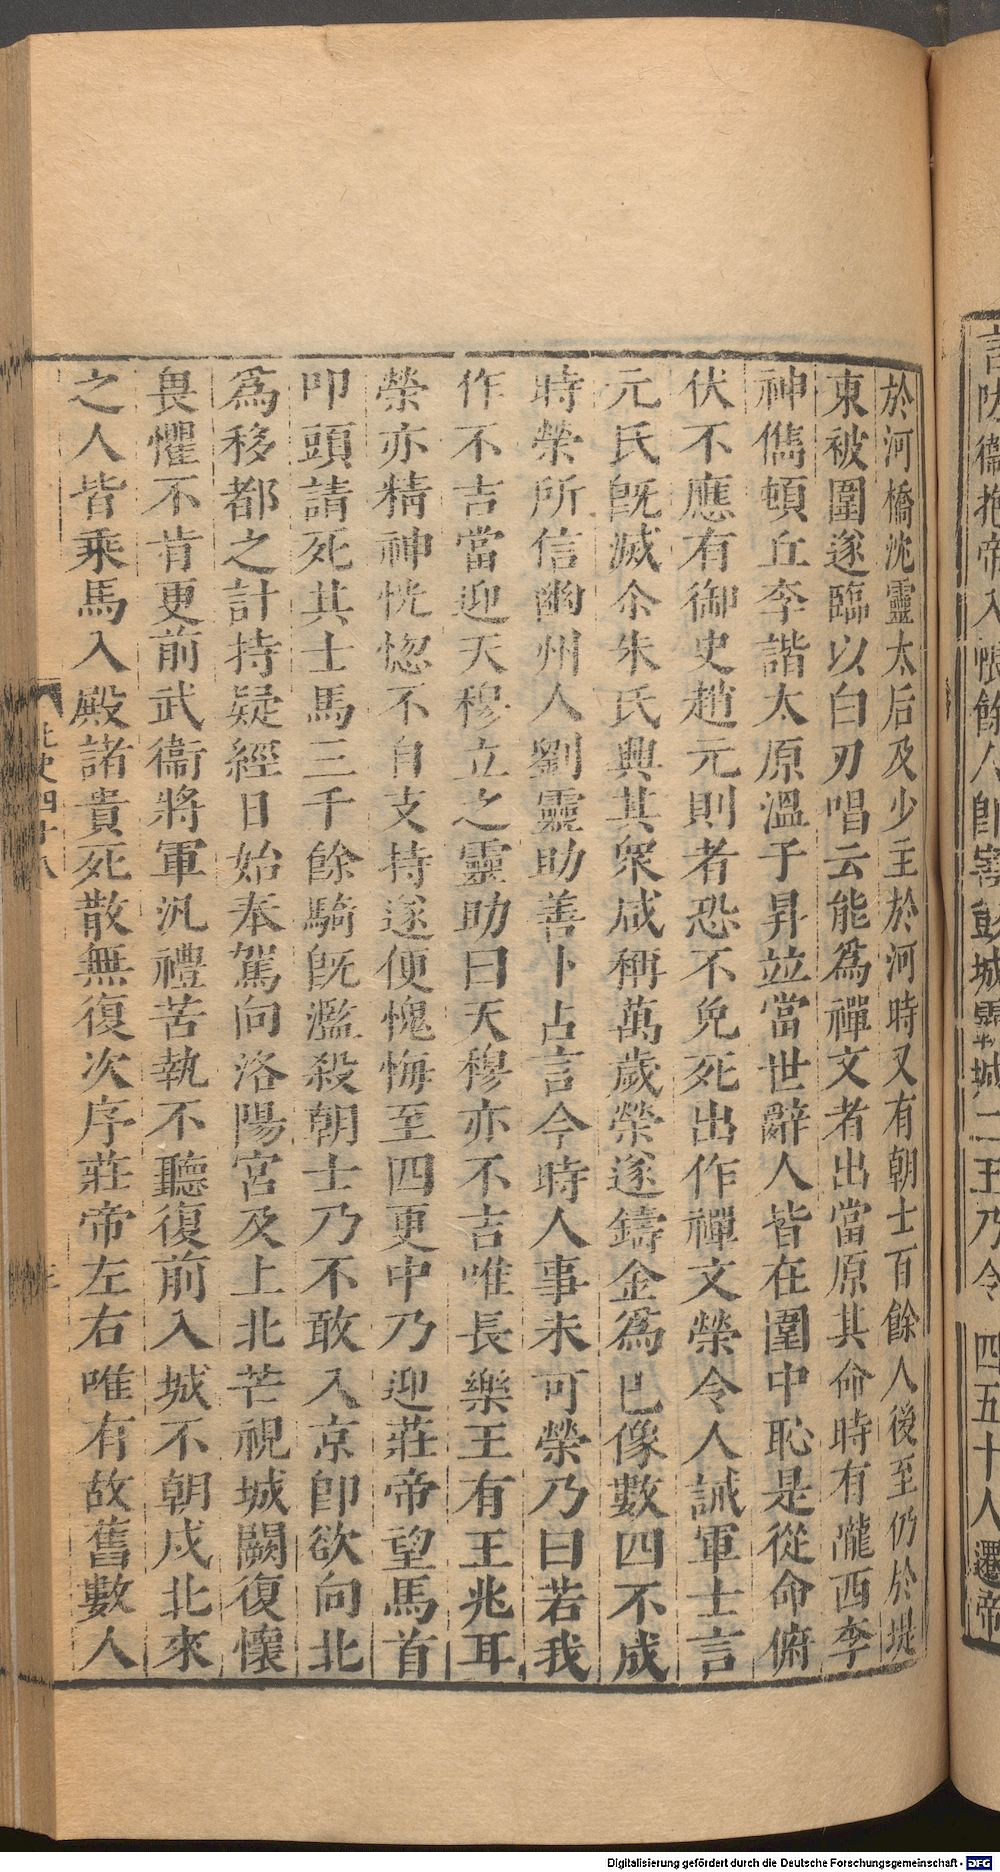 言防衞抱帝入帳餘人即害彭城霸城二王乃令四五十人遷帝
於河橋沈靈太后及少主於河時又有朝士百餘人後至仍於堤
東被圍遂臨以白刃唱云能爲禪文者出當原其命時有隴西李
神儁頓丘李諧太原溫子昇竝當世辭人皆在圍中恥是從命俯
伏不應有御史趙元則者恐不免死出作禪文榮令人誡軍士言
元氏旣滅尒朱氏興其衆咸稱萬歲榮遂鑄金爲已像數四不成
時榮所信幽州人劉靈助善卜占言今時人事未可榮乃曰若我
作不吉當迎天穆立之靈助曰天穆亦不吉唯長樂王有王兆耳
榮亦精神恍惚不自支持遂便愧悔至四更中乃迎莊帝望馬首
叩頭請死其士馬三千餘騎旣濫殺朝士乃不敢入京即欲向北
爲移都之計持疑經日始奉駕向洛陽宮及上北芒視城闕復懷
畏懼不肯更前武衞將軍汎禮苦執不聽復前入城不朝戍北來
之人皆乘馬入殿諸貴死散無復次序莊帝左右唯有故舊數人
北史四十八
Digitalisierung gefördert durch die Deutsche Forschungsgemeinschaft - DFG